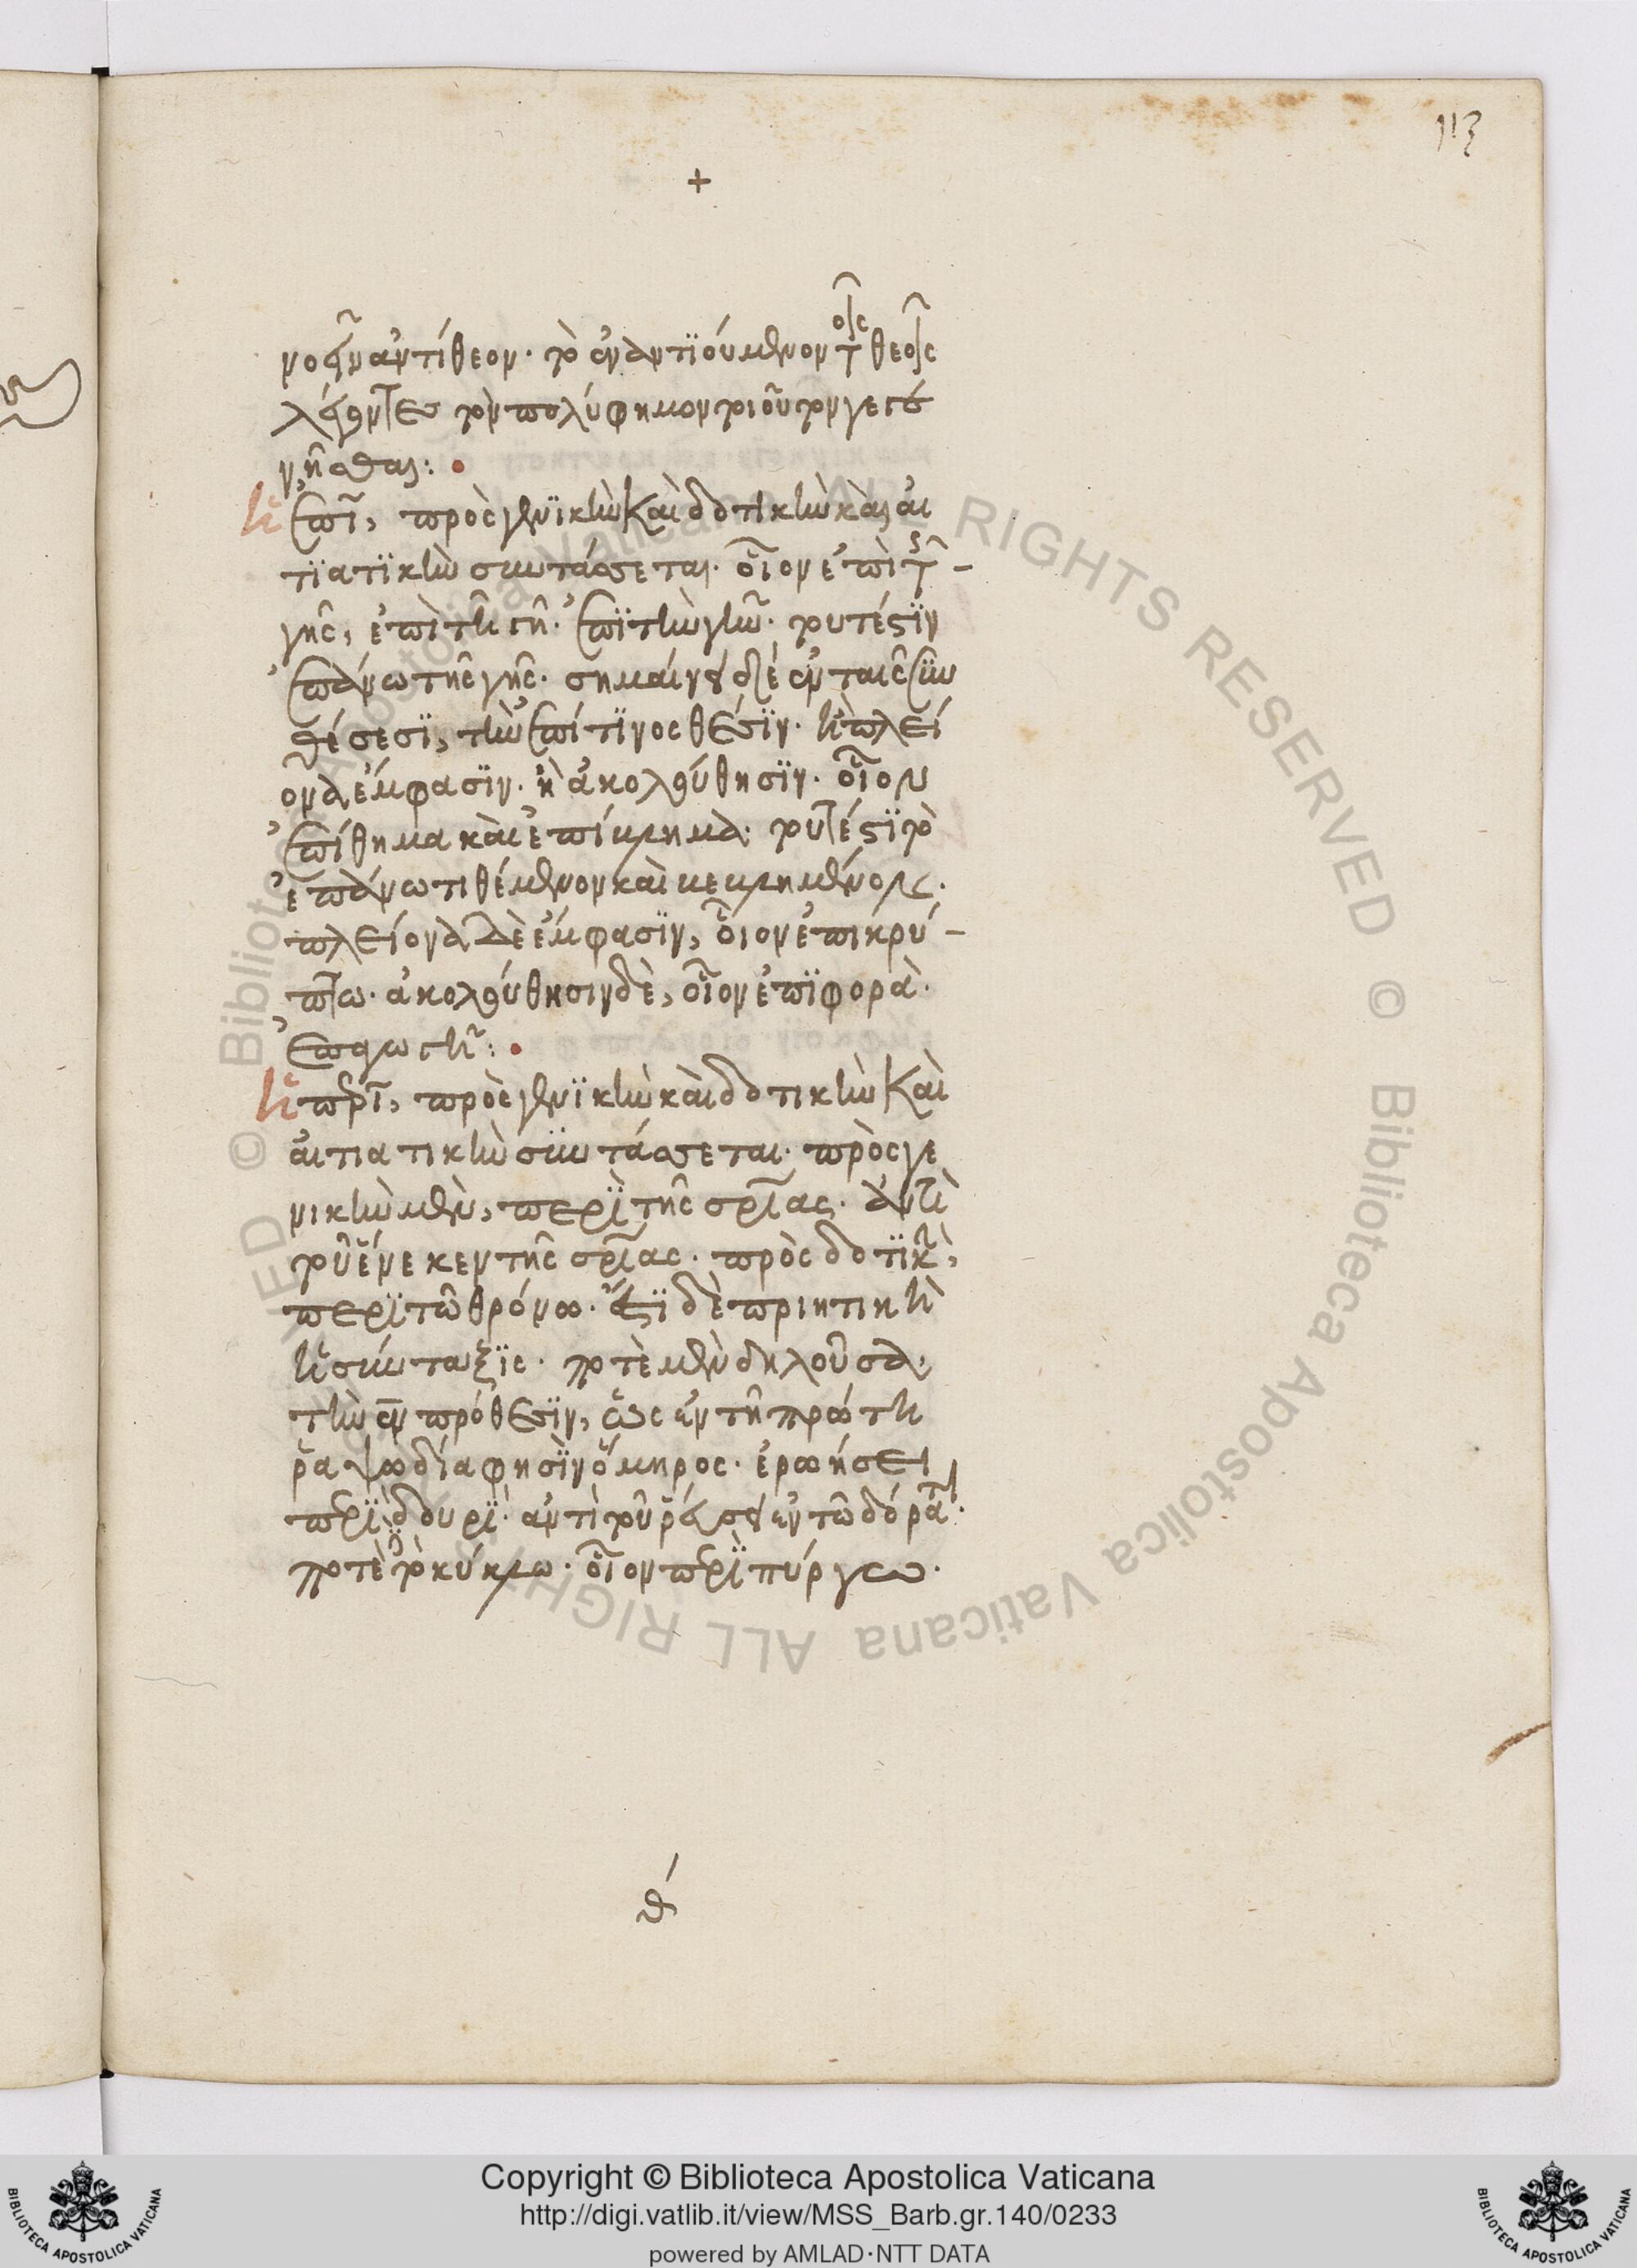 113
+
νοῦν ἀντίθεον· τὸ ἐναντϊούμενον τοῖς θεοῖς
λέγοντες τὸν πολύφημον τοιοῦτον γεγε
νῆσθαι:
ἡ ἐπῒ, πρὸς γενϊκὴν καὶ δοτικὴν καὶ αἰ
τϊατϊκὴν συντάσσεται· οἷον ἐπὶ τῆς
γῆς, ἐπὶ τῆ γῆ· ἐπῒ τὴν γῆν· τουτέστϊν
ἐπάνω τῆς γῆς· σημαίνει δὲ ἐν ταῖς συν
θέσεσϊ, τὴν ἐπί τϊνος θέσϊν· ἢ πλεί
ονα ἔμφασϊν· ἢ ἀκολούθησϊν· οἷον
ἐπίθημα καὶ ἐπίκλημα· τουτέστϊ τὸ
ἐπάνω τιθέμενον καὶ κεκλημένον·
πλείονα δὲ ἔμφασϊν, οἷον ἐπικρύ-
πτω· ἀκολούθησιν δὲ, οἷον ἐπϊφορὰ·
ἡ περῒ, πρὸς γενϊκὴν καὶ δοτικὴν καὶ
αἰτιατικὴν συντάσσεται· πρὸς γε
νικὴν μὲν, περῒ τῆς σοφίας· ἀντὶ
τοῦ ἕνεκεν τῆς σοφίας· πρὸς δοτϊκὴν,
περῒ τῶ θρόνω· ἔστϊ δὲ ποιητικὴ
ἡ σύνταξϊς· ποτὲ μὲν δηλοῦσα
τὴν ἐν πρόθεσϊν, ὡς ἐν τῆ πρώτη
ῥαψωδία φησῒν ὅμηρος· ἐρωήσει
περῒ δουρϊ· ἀντὶ τοῦ ῥεύσει ἐν τῶ δόρατι·
ποτὲ τὸ κύκλω· οἷον περῒ πύργω·
Copyright © Biblioteca Apostolica Vaticana
http://digi.vatlib.it/view/MSS_Barb.gr.140/0233
powered by AMLAD·NTT DATA
BIBLIOTECA APOSTOLICA VATICANA
BIBLIOTECA APOSTOLICA VATICANA